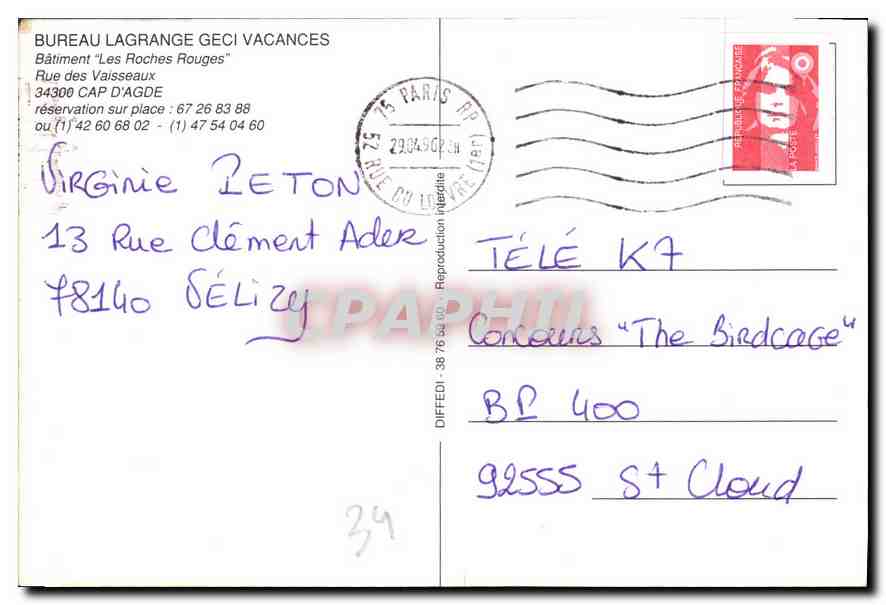 BUREAU LAGRANGE GECI VACANCES
Bâtiment "Les Roches Rouges"
Rue des Vaisseaux
34300 CAP D'AGDE
réservation sur place : 67 26 83 88
ou (1) 42 60 68 02 - (1) 47 54 04 60
75 PARIS RP
52 RUE DU LOUVRE (1er)
REPUBLIQUE FRANÇAISE
LA POSTE
Virginie PETON
13 Rue Clément Ader
78140 VÉLIZY
TÉLÉ K7
Concours "The Birdcage"
BP 400
92555 St Cloud
DIFFEDI - 38 76 59 60 - Reproduction interdite
CPAPHIL
34